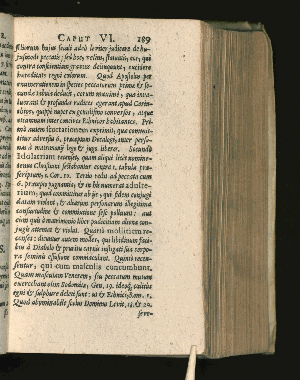 CAPUT VI. 189
filiorum hujus seculi adeò leviter judicare de hu-
jusmodi peccatis: sed hoc velim, statuant, eos, qui
contra conscientiam gravius delinquunt, excidere
hæreditate regni cœlorum. Quod Apostolus per
enumerationem in species peccatorum prima & se-
cundæ tabulæ deducit, eorum maximè, quæ
& profundas radices egerant apud Corin-
thios, quippe nuper ex gentilismo conversos, atque
etiamnum inter concives Ethnicos habitantes. Pri-
mò autem scortationem exprimit, quæ commit-
titur adversus 6. præceptum Decalogi, inter perso-
nas à matrimonii lege & jugo liberas. Secundò
Idololatriam recenset, quam aliqui licet nomine-
tenus Christiani sectabantur contra 1. tabulæ præ-
scriptum, 1. Cor. 10. Tertio redit ad peccata cum
6. præcepto pugnantia, & in his numerat adulte-
rium, quod committitur ab iis, qui fidem conjugi
datam violant, & alteram personarum illegitima
consuetudine & commixtione sese polluunt: aut
cum quis à matrimonio liber pudicitiam alienæ con-
jugis attentat & violat. Quartò mollitiem re-
censet: dicuntur autem molles, qui libidinum faci-
bus à Diabolo & pruritu carnis infligati sua corpo-
ra seminis effusione commaculant. Quintò recen-
sentur, qui cum masculis concumbunt,
Quam masculam Venerem, seu peccatum mutum
exercebant olim Sodomitæ, Gen. 19. ideoq; cœlitus
igni & sulphure deleti sunt: ut & Ethnici, Rom. 1.
Quod abominabile scelus Dominus Levit. 18. & 20.
seve-